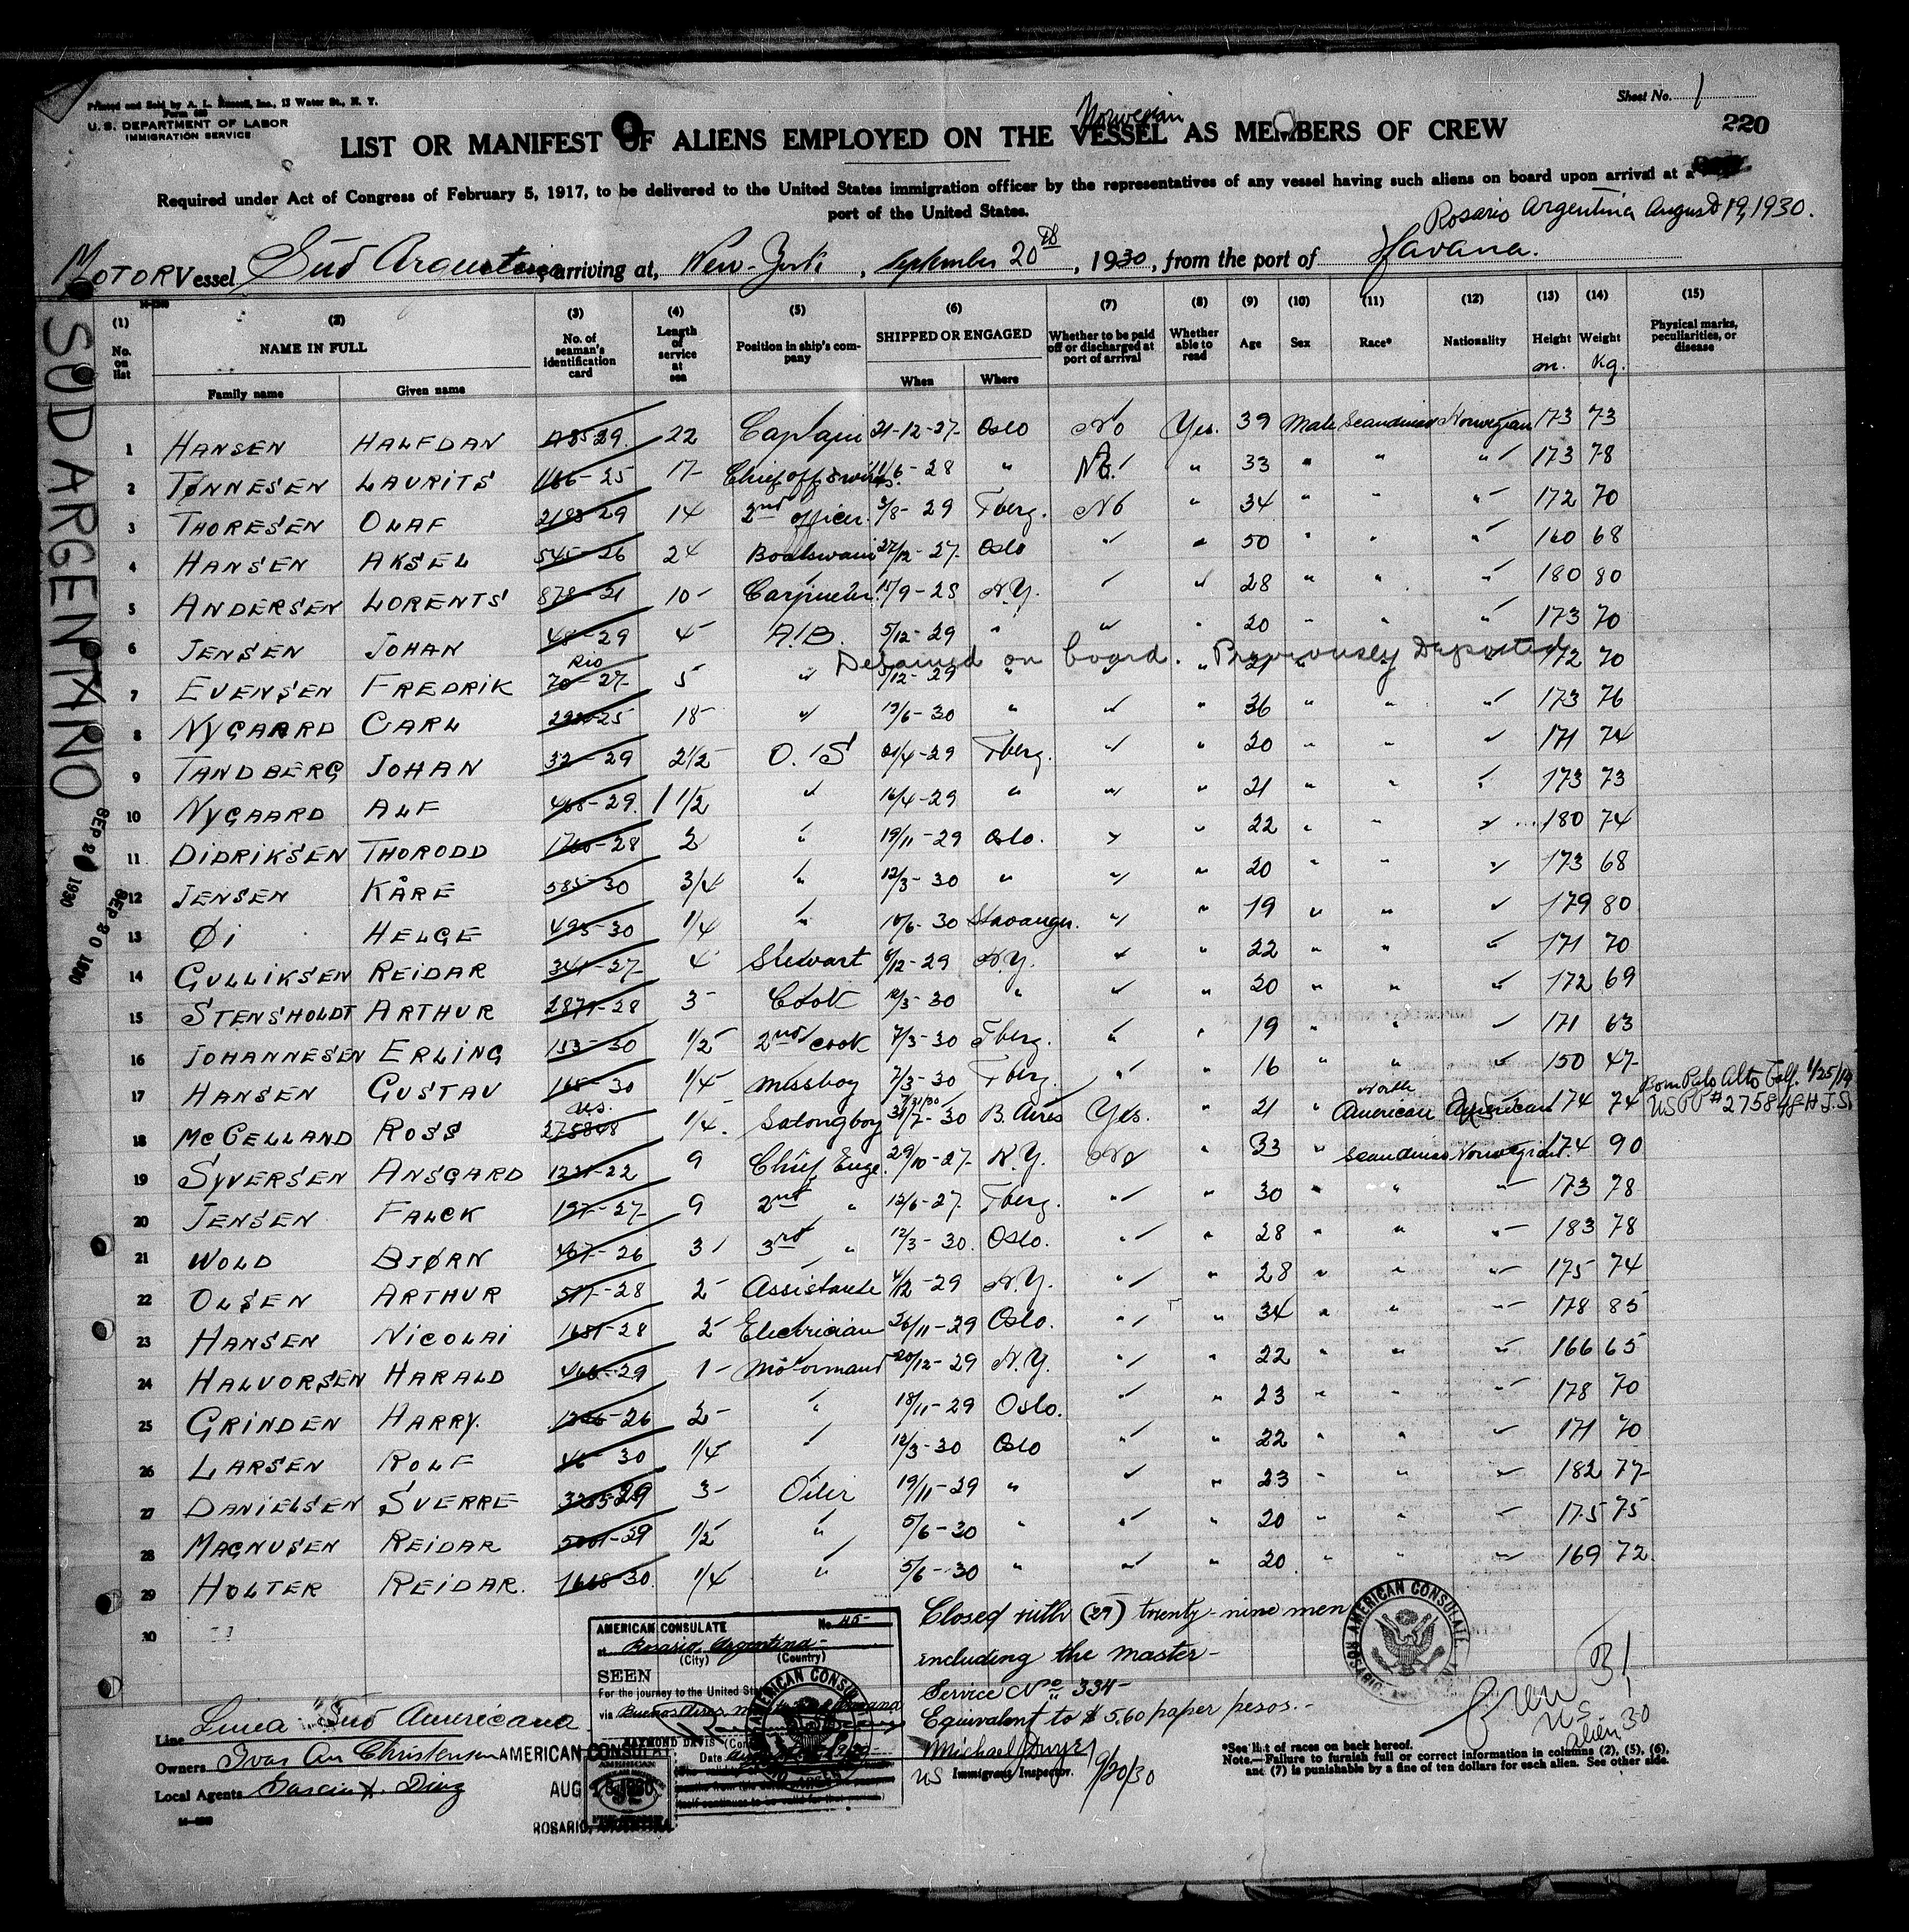 Printed and Sold by A. L. Russell, Inc., 13 Water St., N. Y.
Form 680
U. S. DEPARTMENT OF LABOR
IMMIGRATION SERVICE
Sheet No. 1
220
Norwegian
LIST OR MANIFEST OF ALIENS EMPLOYED ON THE VESSEL AS MEMBERS OF CREW
Required under Act of Congress of February 5, 1917, to be delivered to the United States immigration officer by the representatives of any vessel having such aliens on board upon arrival at a
port of the United States.
Rosario Argentina August 19, 1930.
MOTOR Vessel Sud Argentino, arriving at, New-York, September 20th, 1930, from the port of Havana.
SUD ARGENTINO
SEP 20 1930
SEP 20 1930
(1) No. on list
(2) NAME IN FULL
Family name Given name
(3) No. of seaman's identification card
(4) Length of service at sea
(5) Position in ship's company
(6) SHIPPED OR ENGAGED
When Where
(7) Whether to be paid off or discharged at port of arrival
(8) Whether able to read
(9) Age
(10) Sex
(11) Race*
(12) Nationality
(13) Height m.
(14) Weight Kg.
(15) Physical marks, peculiarities, or disease
1 HANSEN HALFDAN 22 Captain 21-12-27 Oslo No Yes. 39 Male Scandinav Norwegian 173 73
2 TØNNESEN LAURITS 1166-25 17 Chief off 6-28 " No " 33 " " " 173 78
3 THORESEN OLAF 2183-29 14 2nd officer 3/8-29 Tberg. No " 34 " " " 172 70
4 HANSEN AKSEL 545-26 24 Boatswain 27/12-27 Oslo " " 50 " " " 160 68
5 ANDERSEN LORENTS 878-21 10 Carpenter 15/9-28 N.Y. " " 28 " " " 180 80
6 JENSEN JOHAN 48-29 4 A.B. 5/12-29 " " " 20 " " " 173 70
Detained on board. Previously Deported
7 EVENSEN FREDRIK Rio 70-27 5 " 5/12-29 " " " 21 " " " 172 70
8 NYGAARD CARL 18 " 12/6-30 " " " 36 " " " 173 76
9 TANDBERG JOHAN 32-29 2 1/2 O.S 21/4-29 Tberg. " " 20 " " " 171 74
10 NYGAARD ALF 468-29 1 1/2 " 16/4-29 " " " 21 " " " 173 73
11 DIDRIKSEN THORODD 1768-28 2 " 19/11-29 Oslo. " " 22 " " " 180 74
12 JENSEN KÅRE 585-30 3/4 " 12/3-30 " " " 20 " " " 173 68
13 ØI HELGE 493-30 1/4 " 10/6-30 Stavanger. " " 19 " " " 179 80
14 GULLIKSEN REIDAR 341-27 4 Stewart 6/12-29 N.Y. " " 22 " " " 171 70
15 STENSHOLDT ARTHUR 2871-28 3 Cook 12/3-30 " " " 20 " " " 172 69
16 JOHANNESEN ERLING 153-30 1/2 2nd cook 7/3-30 Tberg. " " 19 " " " 171 63
17 HANSEN GUSTAV 168-30 1/4 Messboy 7/3-30 Tberg. " " 16 " " " 150 47
18 McCELLAND ROSS U.S. 275848 1/4 Salongboy 7/31/30 31/7-30 B. Aires Yes. " 21 " North American American 174 74 Born Palo Alto Calf. 1/25/19 USPP #275848 H.J.S.
19 SYVERSEN ANSGARD 1221-22 9 Chief Enge. 29/10-27 N.Y. No " 33 Scandinav Norwegian 174 90
20 JENSEN FALCK 197-27 9 2nd " 12/6-27 Tberg. " " 30 " " " 173 78
21 WOLD BJØRN 467-26 3 3rd " 12/3-30 Oslo. " " 28 " " " 183 78
22 OLSEN ARTHUR 517-28 2 Assistante 4/12-29 N.Y. " " 28 " " " 175 74
23 HANSEN NICOLAI 1681-28 2 Electrician 26/11-29 Oslo. " " 34 " " " 178 85
24 HALVORSEN HARALD 466-29 1 Motormand 20/12-29 N.Y. " " 22 " " " 166 65
25 GRINDEN HARRY. 1246-26 2 " 18/11-29 Oslo. " " 23 " " " 178 70
26 LARSEN ROLF 46-30 1/4 " 12/3-30 Oslo " " 22 " " " 171 70
27 DANIELSEN SVERRE 3 Oiler 19/11-29 " " " 23 " " " 182 77
28 MAGNUSEN REIDAR 1/2 " 5/6-30 " " " 20 " " " 175 75
29 HOLTER REIDAR. 1668-30 1/4 " 5/6-30 " " " 20 " " " 169 72
30
AMERICAN CONSULATE No. 45-
at Rosario, Argentina-
(City) (Country)
SEEN
For the journey to the United States
via Buenos Aires
RAYMOND DAVIS
Date
AMERICAN CONSULATE
AUG 1930
ROSARIO, ARGENTINA
Closed with (29) twenty-nine men
including the master-
Service No 334-
Equivalent to $ 5.60 paper pesos.-
Michael Dwyer
US Immigrant Inspector. 9/20/30
AMERICAN CONSULATE
Crew 31
US
alien 30
Line Linea "Sud Americana
Owners Ivar An Christensen
Local Agents Garcia & Diaz
*See list of races on back hereof.
Note.—Failure to furnish full or correct information in columns (2), (5), (6),
and (7) is punishable by a fine of ten dollars for each alien. See other side.